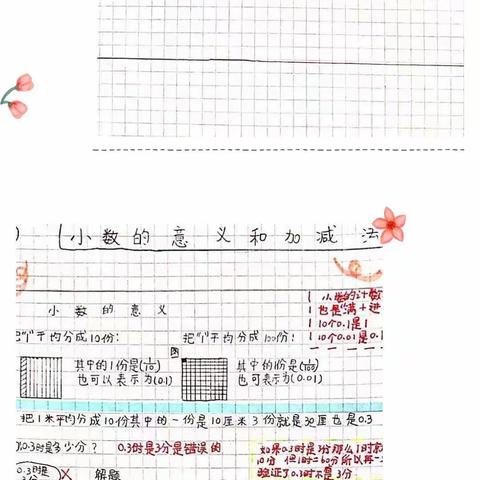 小数的意义和加减法
小数的计数
也是"满十进
10个0.1是1
10个0.01是0.1
小数的意义
把"1"平均分成10份:
把"1"平均分成100份:
图
其中的1份是(1/10)
也可以表示为(0.1)
其中的1份是(1/100)
也可表示为(0.01)
把1米平均分成10份其中的一份是10厘米3份就是30厘也是0.3
0.3时是多少分?
0.3时是3分是错误的
如果0.3时是3分那么1时就
10分 但1时=60分所以再一
验证了0.3时不是3分
0.3时是
3分
解题